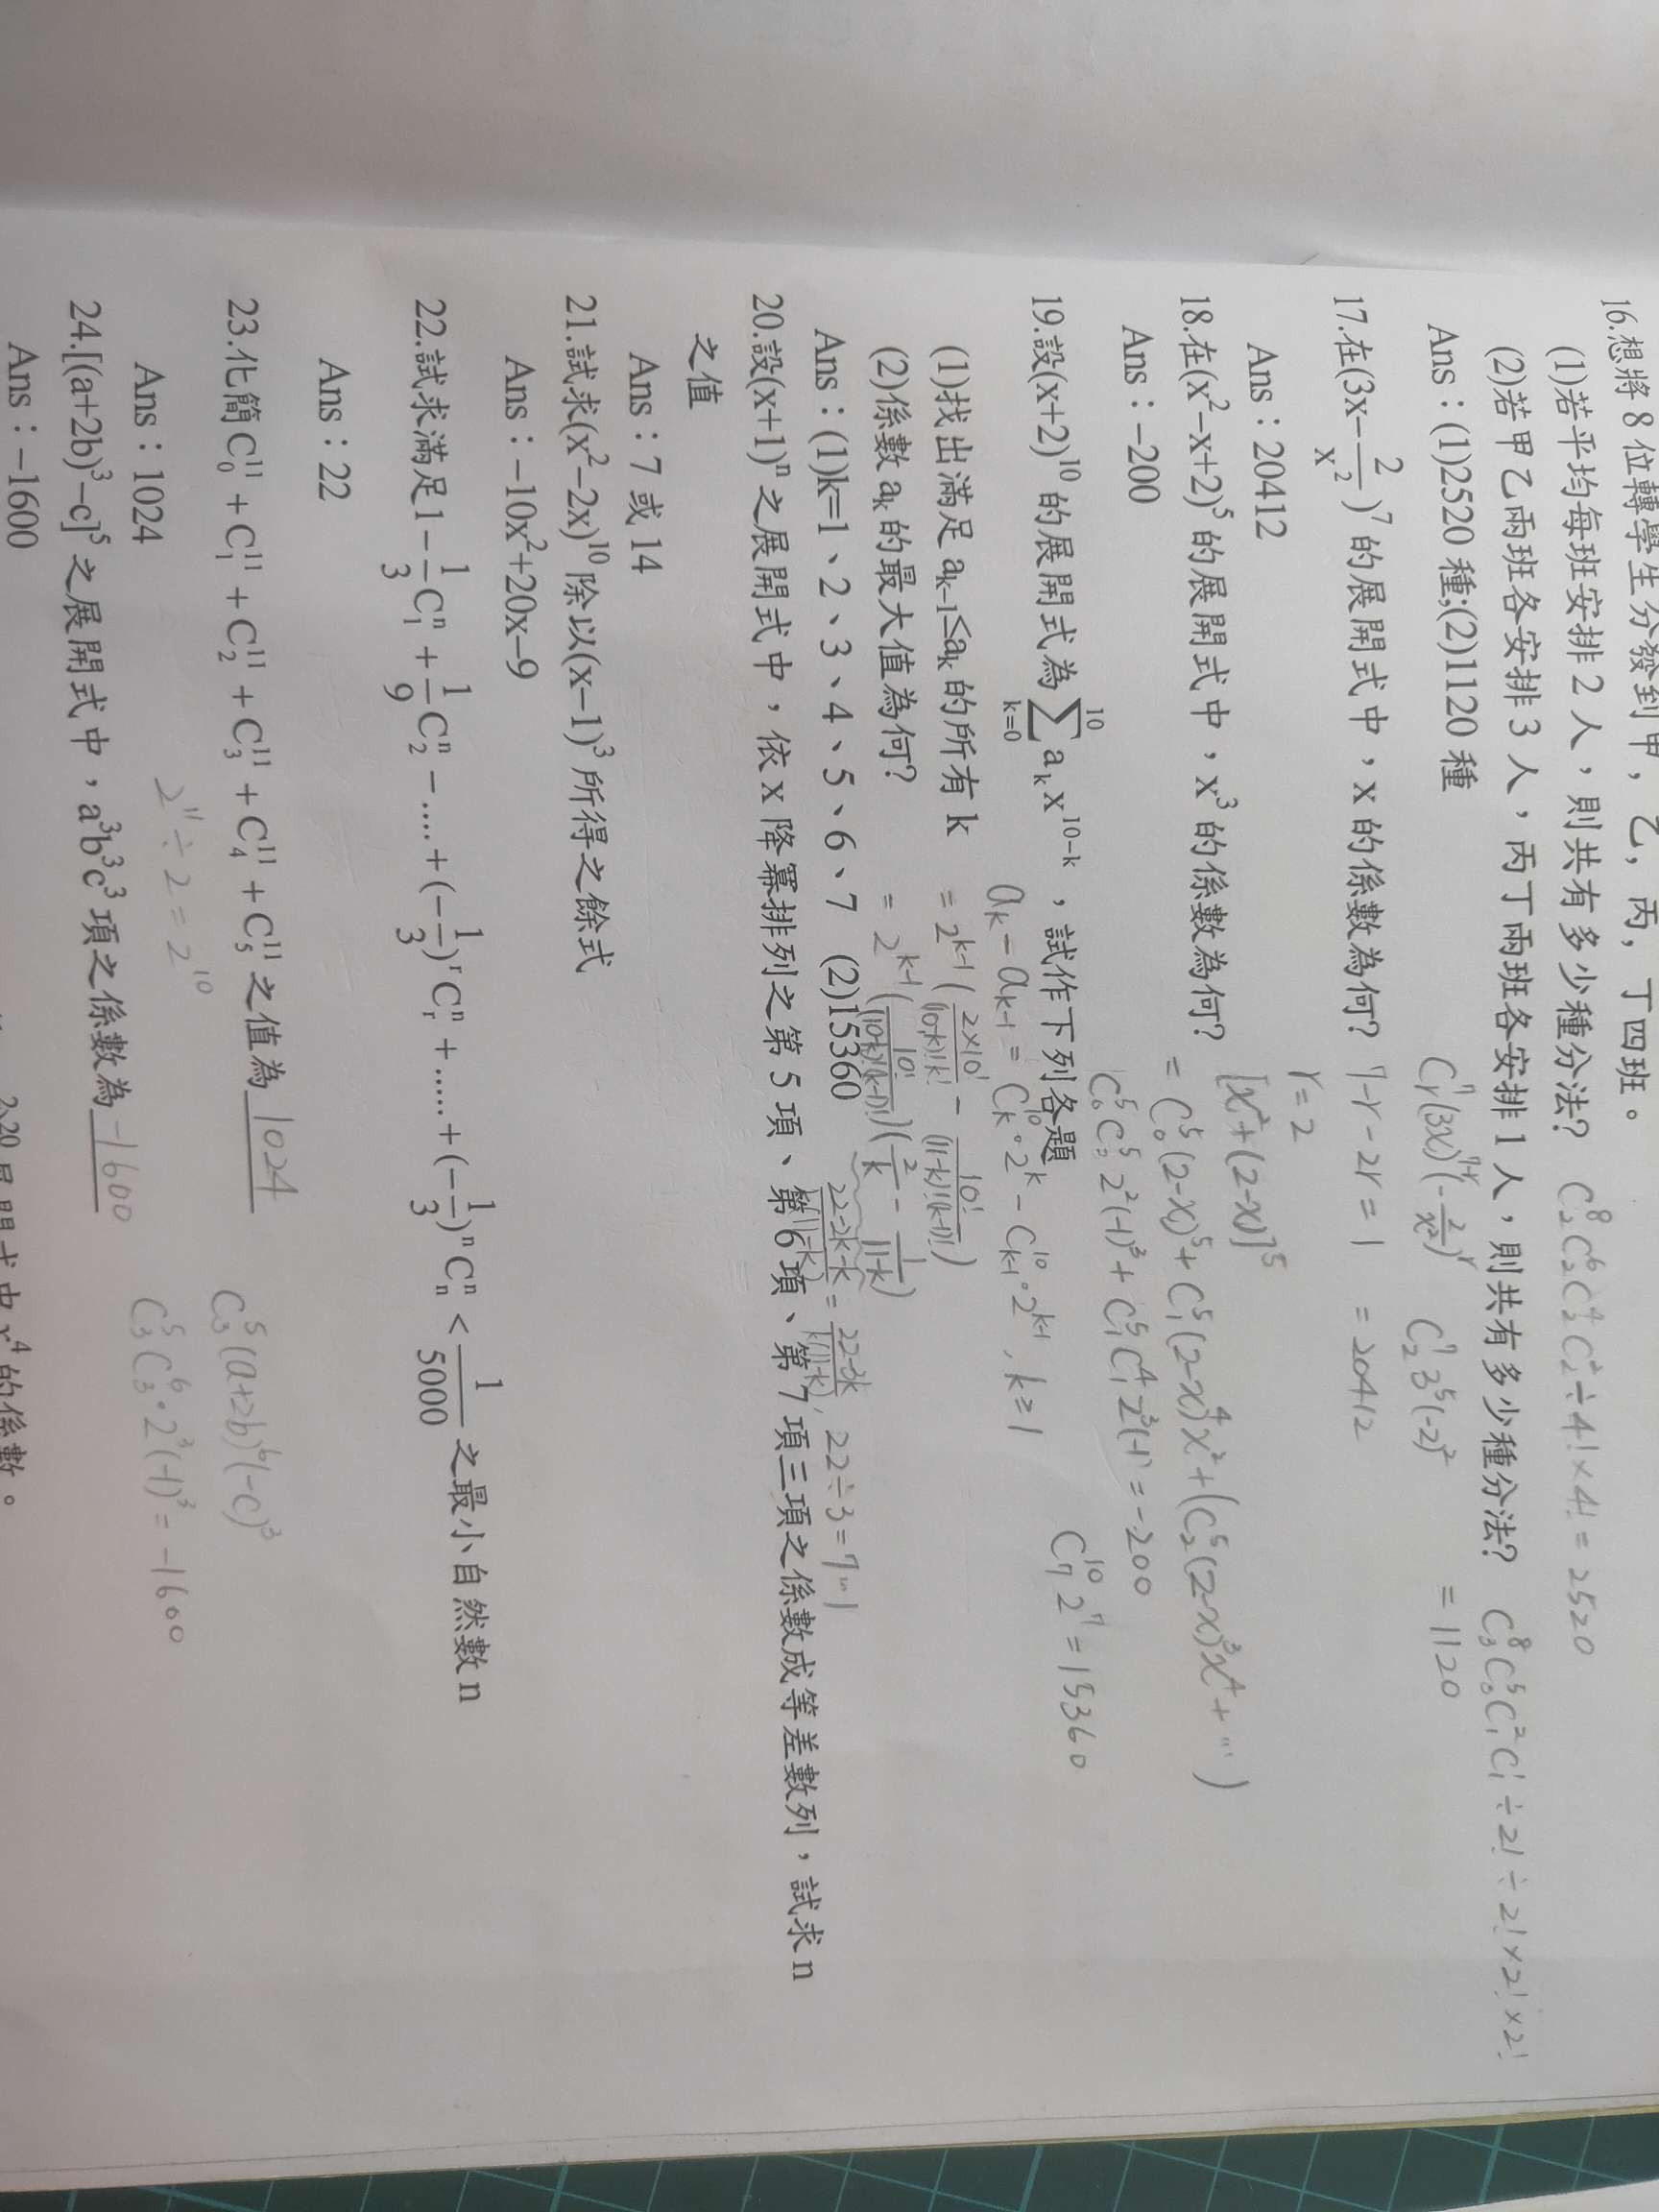 16.想將 8 位轉學生分發到甲，乙，丙，丁四班。
(1)若平均每班安排 2 人，則共有多少種分法? C₂⁸C₂⁶C₂⁴C₂²÷4!×4! = 2520
(2)若甲乙兩班各安排 3 人，丙丁兩班各安排 1 人，則共有多少種分法? C₃⁸C₃⁵C₁²C₁¹÷2!÷2!×2!×2!
Ans：(1)2520 種;(2)1120 種 = 1120
17.在(3x−2/x²)⁷ 的展開式中，x 的係數為何? 7−r−2r = 1 = 20412
Cᵣ⁷(3x)⁷⁻ʳ(−2/x²)ʳ C₂⁷3⁵(−2)²
Ans：20412 r=2
18.在(x²−x+2)⁵ 的展開式中，x³ 的係數為何? [x²+(2−x)]⁵
= C₀⁵(2−x)⁵+C₁⁵(2−x)⁴x²+(C₂⁵(2−x)³x⁴+…)
Ans：−200 C₀⁵C₃⁵2²(−1)³+C₁⁵C₁⁴2³(−1)¹=−200
19.設(x+2)¹⁰ 的展開式為 ∑_{k=0}^{10} aₖx¹⁰⁻ᵏ，試作下列各題 C₇¹⁰2⁷=15360
aₖ−aₖ₋₁= Cₖ¹⁰·2ᵏ − Cₖ₋₁¹⁰·2ᵏ⁻¹, k≥1
(1)找出滿足 aₖ₋₁≤aₖ 的所有 k = 2ᵏ⁻¹(2×10!/(10−k)!k! − 10!/(11−k)!(k−1)!)
(2)係數 aₖ 的最大值為何? = 2ᵏ⁻¹(10!/(10−k)!(k−1)!)(2/k − 1/(11−k))
Ans：(1)k=1、2、3、4、5、6、7 (2)15360 (22−2k−k)/k(11−k) = (22−3k)/k(11−k), 22÷3=7…1
20.設(x+1)ⁿ 之展開式中，依 x 降冪排列之第 5 項、第 6 項、第 7 項三項之係數成等差數列，試求 n
之值
Ans：7 或 14
21.試求(x²−2x)¹⁰ 除以(x−1)³ 所得之餘式
Ans：−10x²+20x−9
22.試求滿足 1−1/3C₁ⁿ+1/9C₂ⁿ−....+(−1/3)ʳCᵣⁿ+......+(−1/3)ⁿCₙⁿ<1/5000 之最小自然數 n
Ans：22
23.化簡 C₀¹¹+C₁¹¹+C₂¹¹+C₃¹¹+C₄¹¹+C₅¹¹ 之值為 1024
Ans：1024 2¹¹÷2=2¹⁰
24.[(a+2b)³−c]⁵ 之展開式中，a³b³c³ 項之係數為 −1600
C₃⁵(a+2b)⁶(−c)³
C₃⁵C₃⁶·2³(−1)³=−1600
Ans：−1600